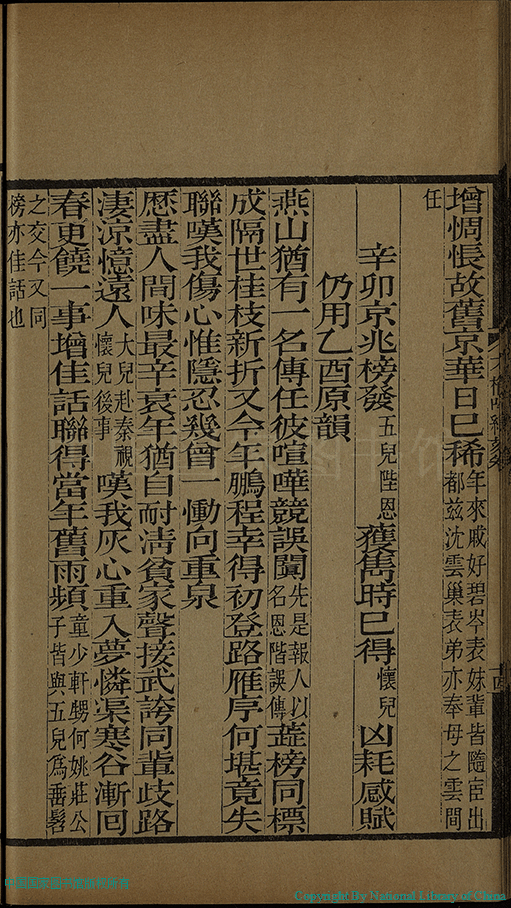 增惆悵故舊京華日已稀年來戚好碧岑表妹輩皆隨宦出都兹沈雲巢表弟亦奉母之雲間
任
辛卯京兆榜發五兒陛恩獲雋時已得懷兒凶耗感賦
仍用乙酉原韻
燕山猶有一名傳任彼喧嘩競誤聞先是報人以名恩階誤傳蕋榜同標
成隔世桂枝新折又今年鵬程幸得初登路雁序何堪竟失
聯嘆我傷心惟隱忍幾曾一慟向重泉
歷盡人間味最辛衰年猶自耐清貧家聲接武誇同輩歧路
淒涼憶遠人大兒赴秦視懷兒後事嘆我灰心重入夢憐渠寒谷漸回
春更饒一事增佳話聯得當年舊雨頻童少軒甥何姚莊公子皆與五兒為垂髫
之交今又同榜亦佳話也
Copyright By National Library of China